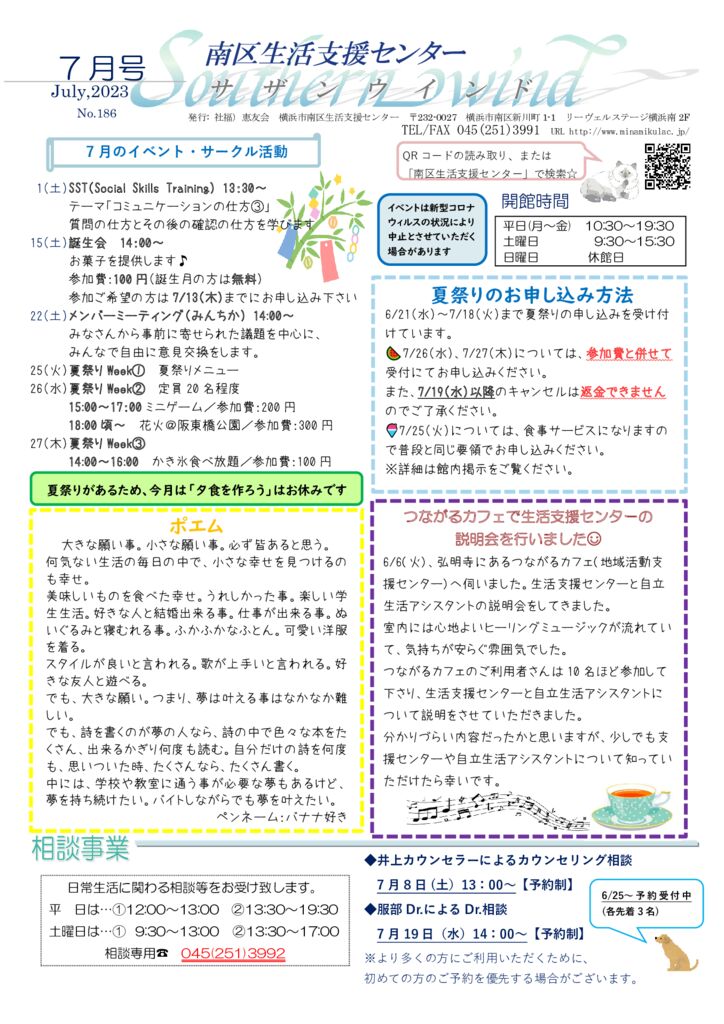 7月号
July,2023
No.186
南区生活支援センター
Southern wind
サザンウインド
発行: 社福) 恵友会 横浜市南区生活支援センター 〒232-0027 横浜市南区新川町1-1 リーヴェルステージ横浜南2F
TEL/FAX 045(251)3991 URL http://www.minamikulac.jp/
7月のイベント・サークル活動
1(土)SST(Social Skills Training) 13:30~
テーマ「コミュニケーションの仕方③」
質問の仕方とその後の確認の仕方を学びます
15(土)誕生会 14:00~
お菓子を提供します♪
参加費:100円(誕生月の方は無料)
参加ご希望の方は7/13(木)までにお申し込み下さい
22(土)メンバーミーティング(みんちか) 14:00~
みなさんから事前に寄せられた議題を中心に、
みんなで自由に意見交換をします。
25(火)夏祭りWeek① 夏祭りメニュー
26(水)夏祭りWeek② 定員20名程度
15:00~17:00ミニゲーム/参加費:200円
18:00頃~ 花火@阪東橋公園/参加費:300円
27(木)夏祭りWeek③
14:00~16:00 かき氷食べ放題/参加費:100円
夏祭りがあるため、今月は「夕食を作ろう」はお休みです
QRコードの読み取り、または
「南区生活支援センター」で検索☆
イベントは新型コロナ
ウィルスの状況により
中止とさせていただく
場合があります
開館時間
平日(月~金) 10:30~19:30
土曜日 9:30~15:30
日曜日 休館日
夏祭りのお申し込み方法
6/21(水)~7/18(火)まで夏祭りの申し込みを受け付
けています。
🍉7/26(水)、7/27(木)については、参加費と併せて
受付にてお申し込みください。
また、7/19(水)以降のキャンセルは返金できません
のでご了承ください。
🍧7/25(火)については、食事サービスになりますの
で普段と同じ要領でお申し込みください。
※詳細は館内掲示をご覧ください。
ポエム
大きな願い事。小さな願い事。必ず皆あると思う。
何気ない生活の毎日の中で、小さな幸せを見つけるの
も幸せ。
美味しいものを食べた幸せ。うれしかった事。楽しい学
生生活。好きな人と結婚出来る事。仕事が出来る事。ぬ
いぐるみと寝むれる事。ふかふかなふとん。可愛い洋服
を着る。
スタイルが良いと言われる。歌が上手いと言われる。好
きな友人と遊べる。
でも、大きな願い。つまり、夢は叶える事はなかなか難し
い。
でも、詩を書くのが夢の人なら、詩の中で色々な本をた
くさん、出来るかぎり何度も読む。自分だけの詩を何度
も、思いついた時、たくさんなら、たくさん書く。
中には、学校や教室に通う事が必要な夢もあるけど、
夢を持ち続けたい。バイトしながらでも夢を叶えたい。
ペンネーム:バナナ好き
つながるカフェで生活支援センターの
説明会を行いました☺
6/6(火)、弘明寺にあるつながるカフェ(地域活動支
援センター)へ伺いました。生活支援センターと自立
生活アシスタントの説明会をしてきました。
室内には心地よいヒーリングミュージックが流れてい
て、気持ちが安らぐ雰囲気でした。
つながるカフェのご利用者さんは10名ほど参加して
下さり、生活支援センターと自立生活アシスタントに
ついて説明をさせていただきました。
分かりづらい内容だったかと思いますが、少しでも支
援センターや自立生活アシスタントについて知ってい
ただけたら幸いです。
相談事業
日常生活に関わる相談等をお受け致します。
平 日は…①12:00~13:00 ②13:30~19:30
土曜日は…① 9:30~13:00 ②13:30~17:00
相談専用☎ 045(251)3992
◆井上カウンセラーによるカウンセリング相談
7月8日(土)13:00~【予約制】
◆服部Dr.によるDr.相談
7月19日(水)14:00~【予約制】
※より多くの方にご利用いただくために、
初めての方のご予約を優先する場合がございます。
6/25~予約受付中
(各先着3名)